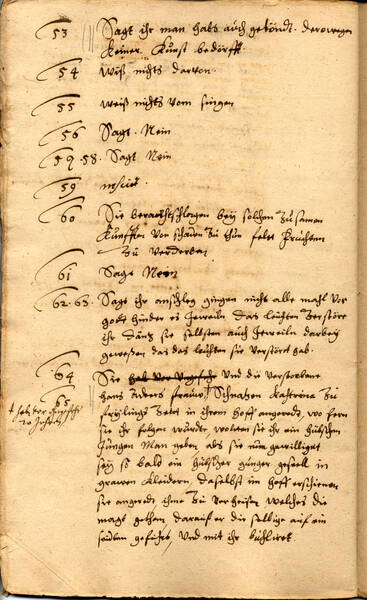 53 Sagt ihr man habs auch geköndt. derowegen
Keiner Kunst bedörfft
54 Weiß nichts darvon.
55 weiß nichts vom singen
56 Sagt. Nein
57.58. Sagt Nein
59 nescit.
60 Sie berathschlagen bey solchen Zusamen
Kunfften von schawer Zu thun felt früchten
Zu verderben
61 Sagt Nein
62.63. Sagt ihr anschleg gingen nicht alle mahl vor
gott hinder es Jeweiln das leuthen Zerstöre
ihr däntz sie selbsten auch Jeweiln darbey
geweßen das das leuthen sie verstöret hab.
64 Sie hab vor und die verstorbene
65 hans fraw, Schnatzen Kathrina Zu
frylings Zeit in ihrem hoff angeredt, wo fern
sie ihr folgen würdt, wolten sie ihr ein hübschen
Jungen Man geben als sie nun gewilliget
sey so bald ein hübscher Junger gesell in
grawen Kleidern, daselbst im hoff erschienen
sie angeredt ihme Zu verheisen welches die
magt gethan, darauf er die selbige auf ein
geführt, Und mit ihr bühliret.